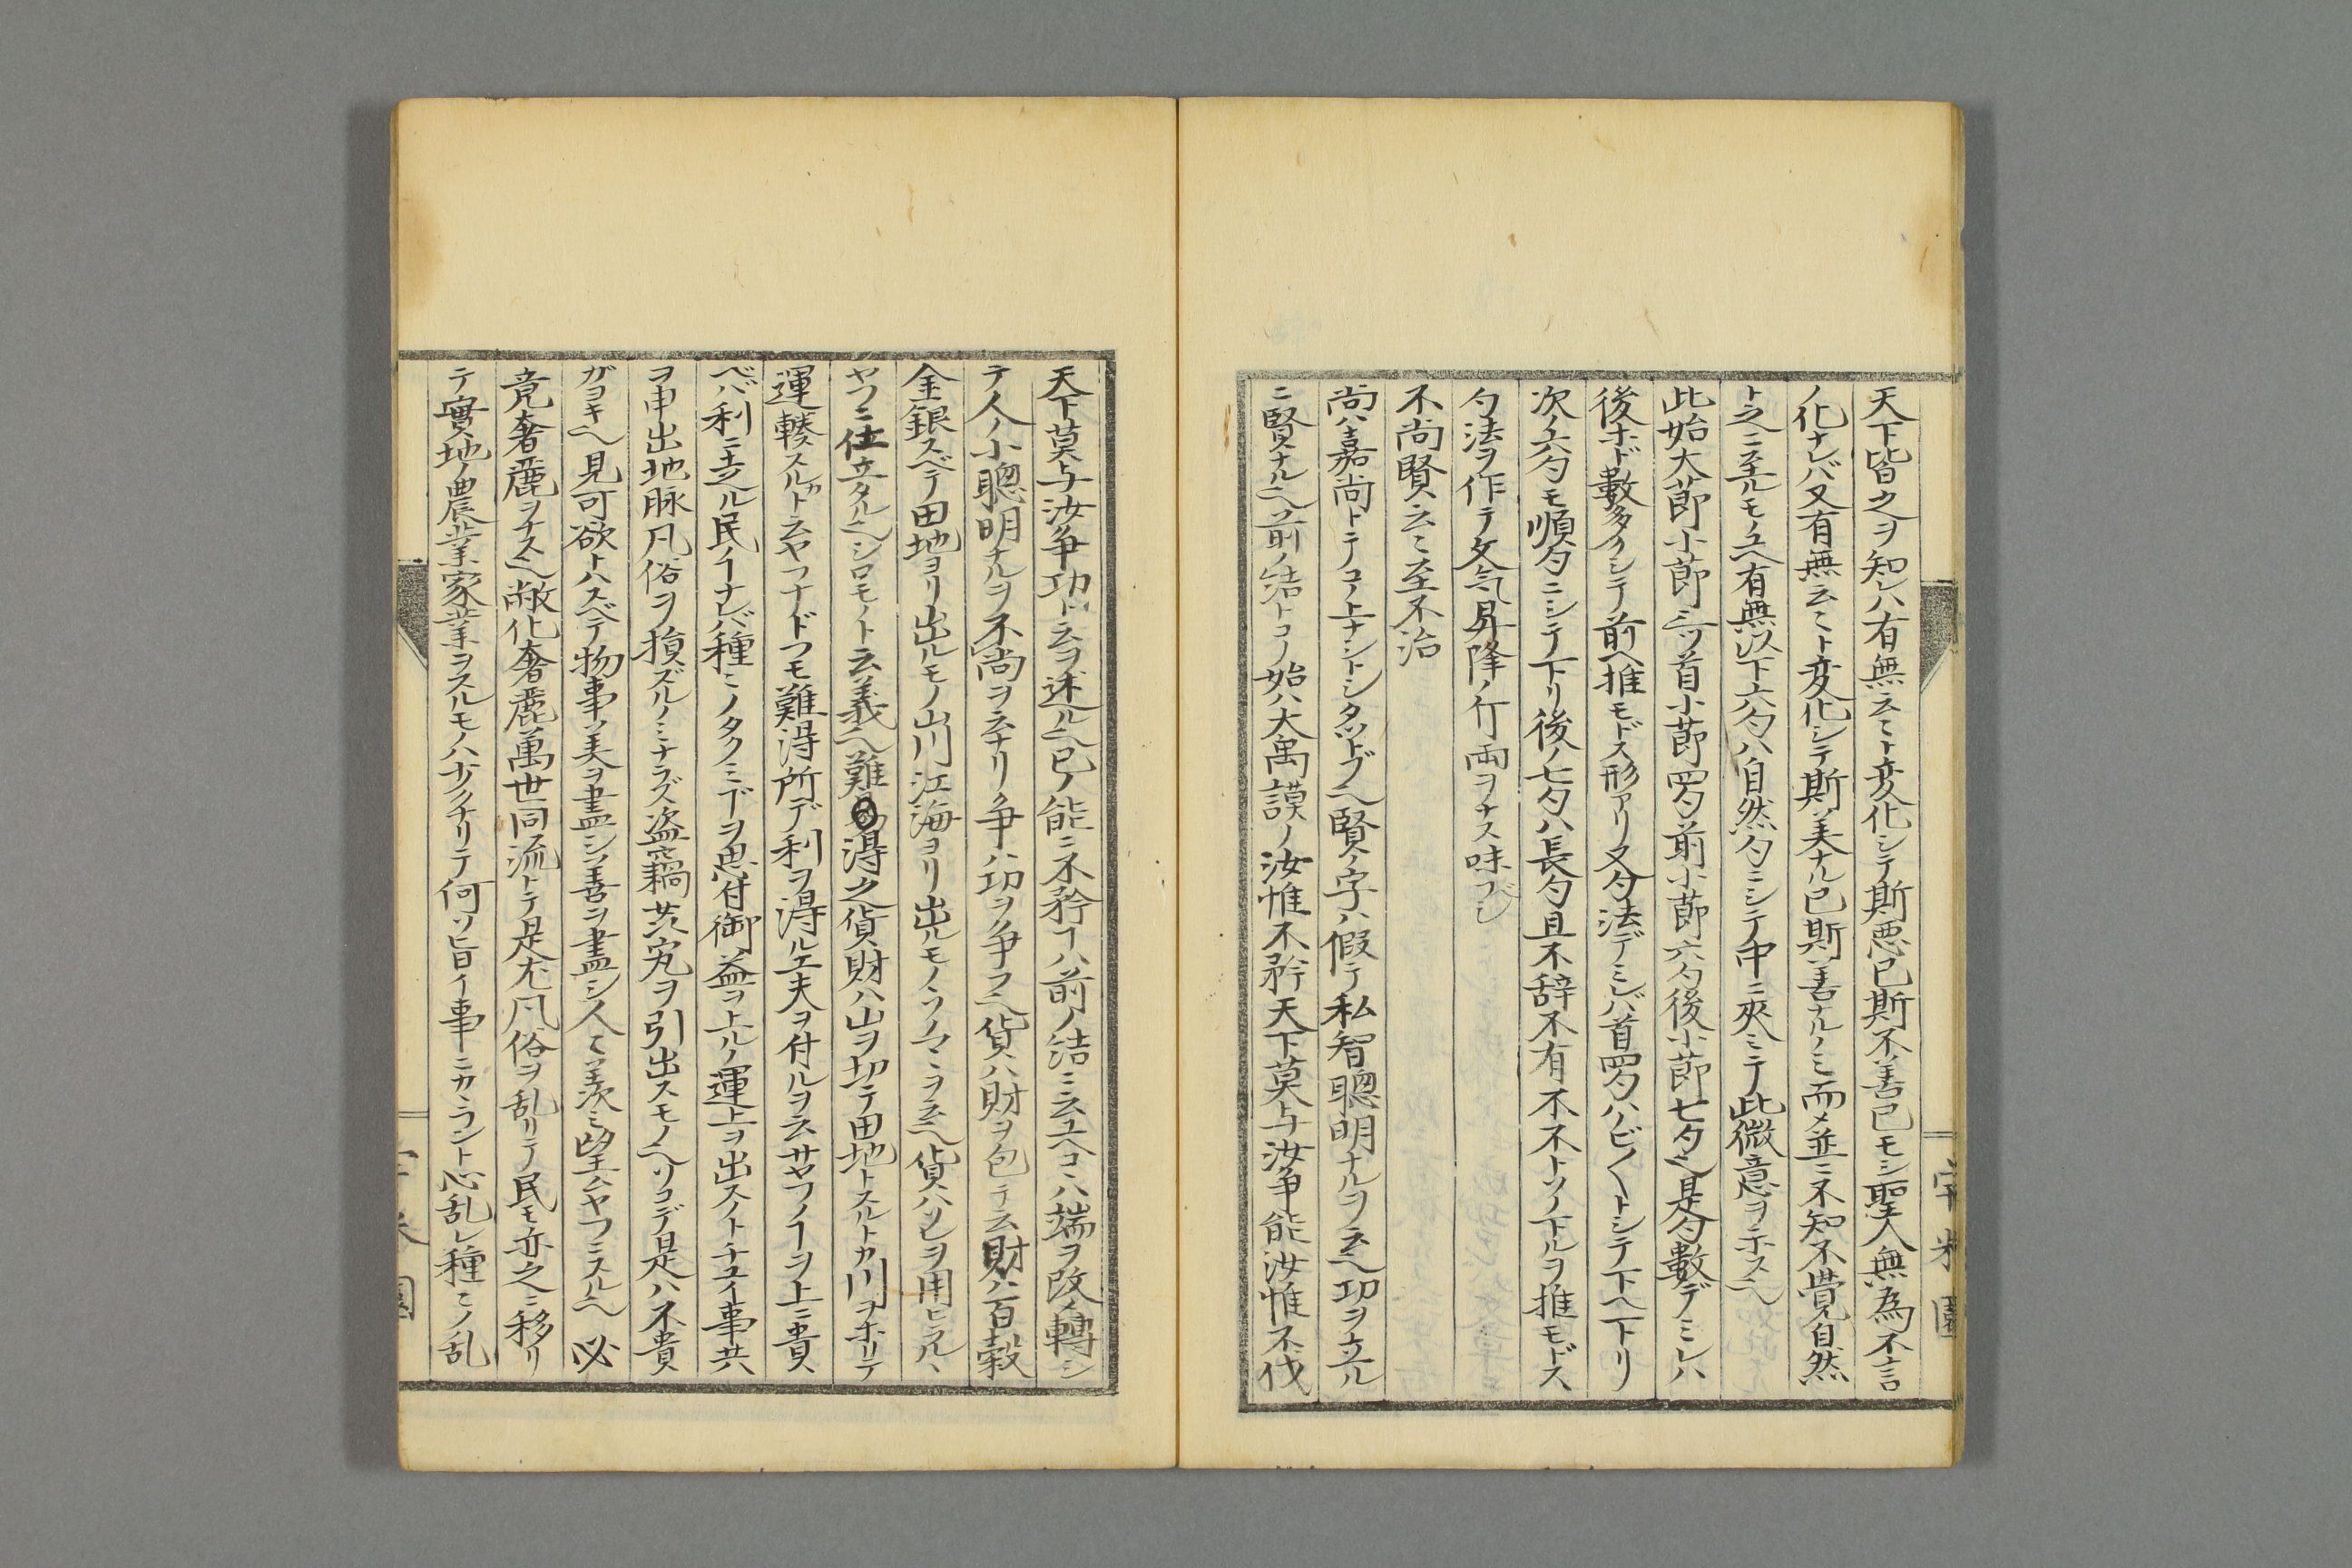 天下皆之ヲ知レハ有無云〻ト変化シテ斯悪已斯不善已モシ聖人無為不言
ノ化ナレバ又有無云〻ト変化シテ斯美ナル已斯善ナルノミ而〆並ニ不知不覺自然
ト之ニ至ルモノユヘ有無以下六勺ハ自然勺ニシテ中ニ夾ミテ此微意ヲ示ス也
此始大莭小莭三ツ首小莭四勺前小莭六勺後小莭七勺也是勺數デミレハ
後ホド數多クシテ前ヘ推モドス形アリ又勺法デミレバ首四勺ハノビ〱トシテ下ヘ下リ
次ノ六勺モ順勺ニシテ下リ後ノ七勺ハ長勺且不辞不有不不トツノ下ルヲ推モドス
勺法ヲ作テ文气昇降ノ行両ヲナス味ベシ
不尚賢云〻至不治
尚ハ嘉尚トテコノ上ナシトシタットブ也賢ノ字ハ假テ私智聰明ナルヲ云也功ヲ立ル
ニ賢ナル也前ノ結トコノ始ハ大禹謨ノ汝惟不矜天下莫与汝争能汝惟不伐
天下莫与汝争功ト云ヲ述ル也已ノ能ニ不矜フハ前ノ結ニ云ユヘコヽハ端ヲ改メ轉シ
テ人ノ小聰明ナルヲ不尚ヲ云ナリ争ハ功ヲ争フ也貨ハ財ヲ包テ云財ハ百穀
金銀スベテ田地ヨリ出ルモノ山川江海ヨリ出ルモノソノマヽヲ云也貨ハソレヲ用ヒラルヽ
ヤフニ仕立タル也シロモノト云義也難得之貨財ハ山ヲ切テ田地トスルトカ川ヲホリテ
運轉スルトカ云ヤフナドフモ難得所デ利ヲ得ル工夫ヲ付ルヲ云サヤフノヿヲ上ニ貴
ベバ利ニ走ル民ノヿナレバ種〻ノタクミデヲ思付御益ヲ上ルノ運上ヲ出スノトチユイ事共
ヲ申出地脉凡俗ヲ損ズルノミナラズ盗竊姦宄ヲ引出スモノ也ソコデ是ハ不貴
ガヨキ也見可欲トハスベテ物事ソ美ヲ盡シソ善ヲ盡シ人〻羨ミ望ムヤフニスル也必
竟奢麗ヲナス也敝化奢麗萬世同流トテ是尤凡俗ヲ乱リテ民モ亦之ニ移リ
テ實地ノ農業家業ヲスルモノハ少クナリテ何ソ旨イ事ニカヽラント心乱レ種〻ノ乱